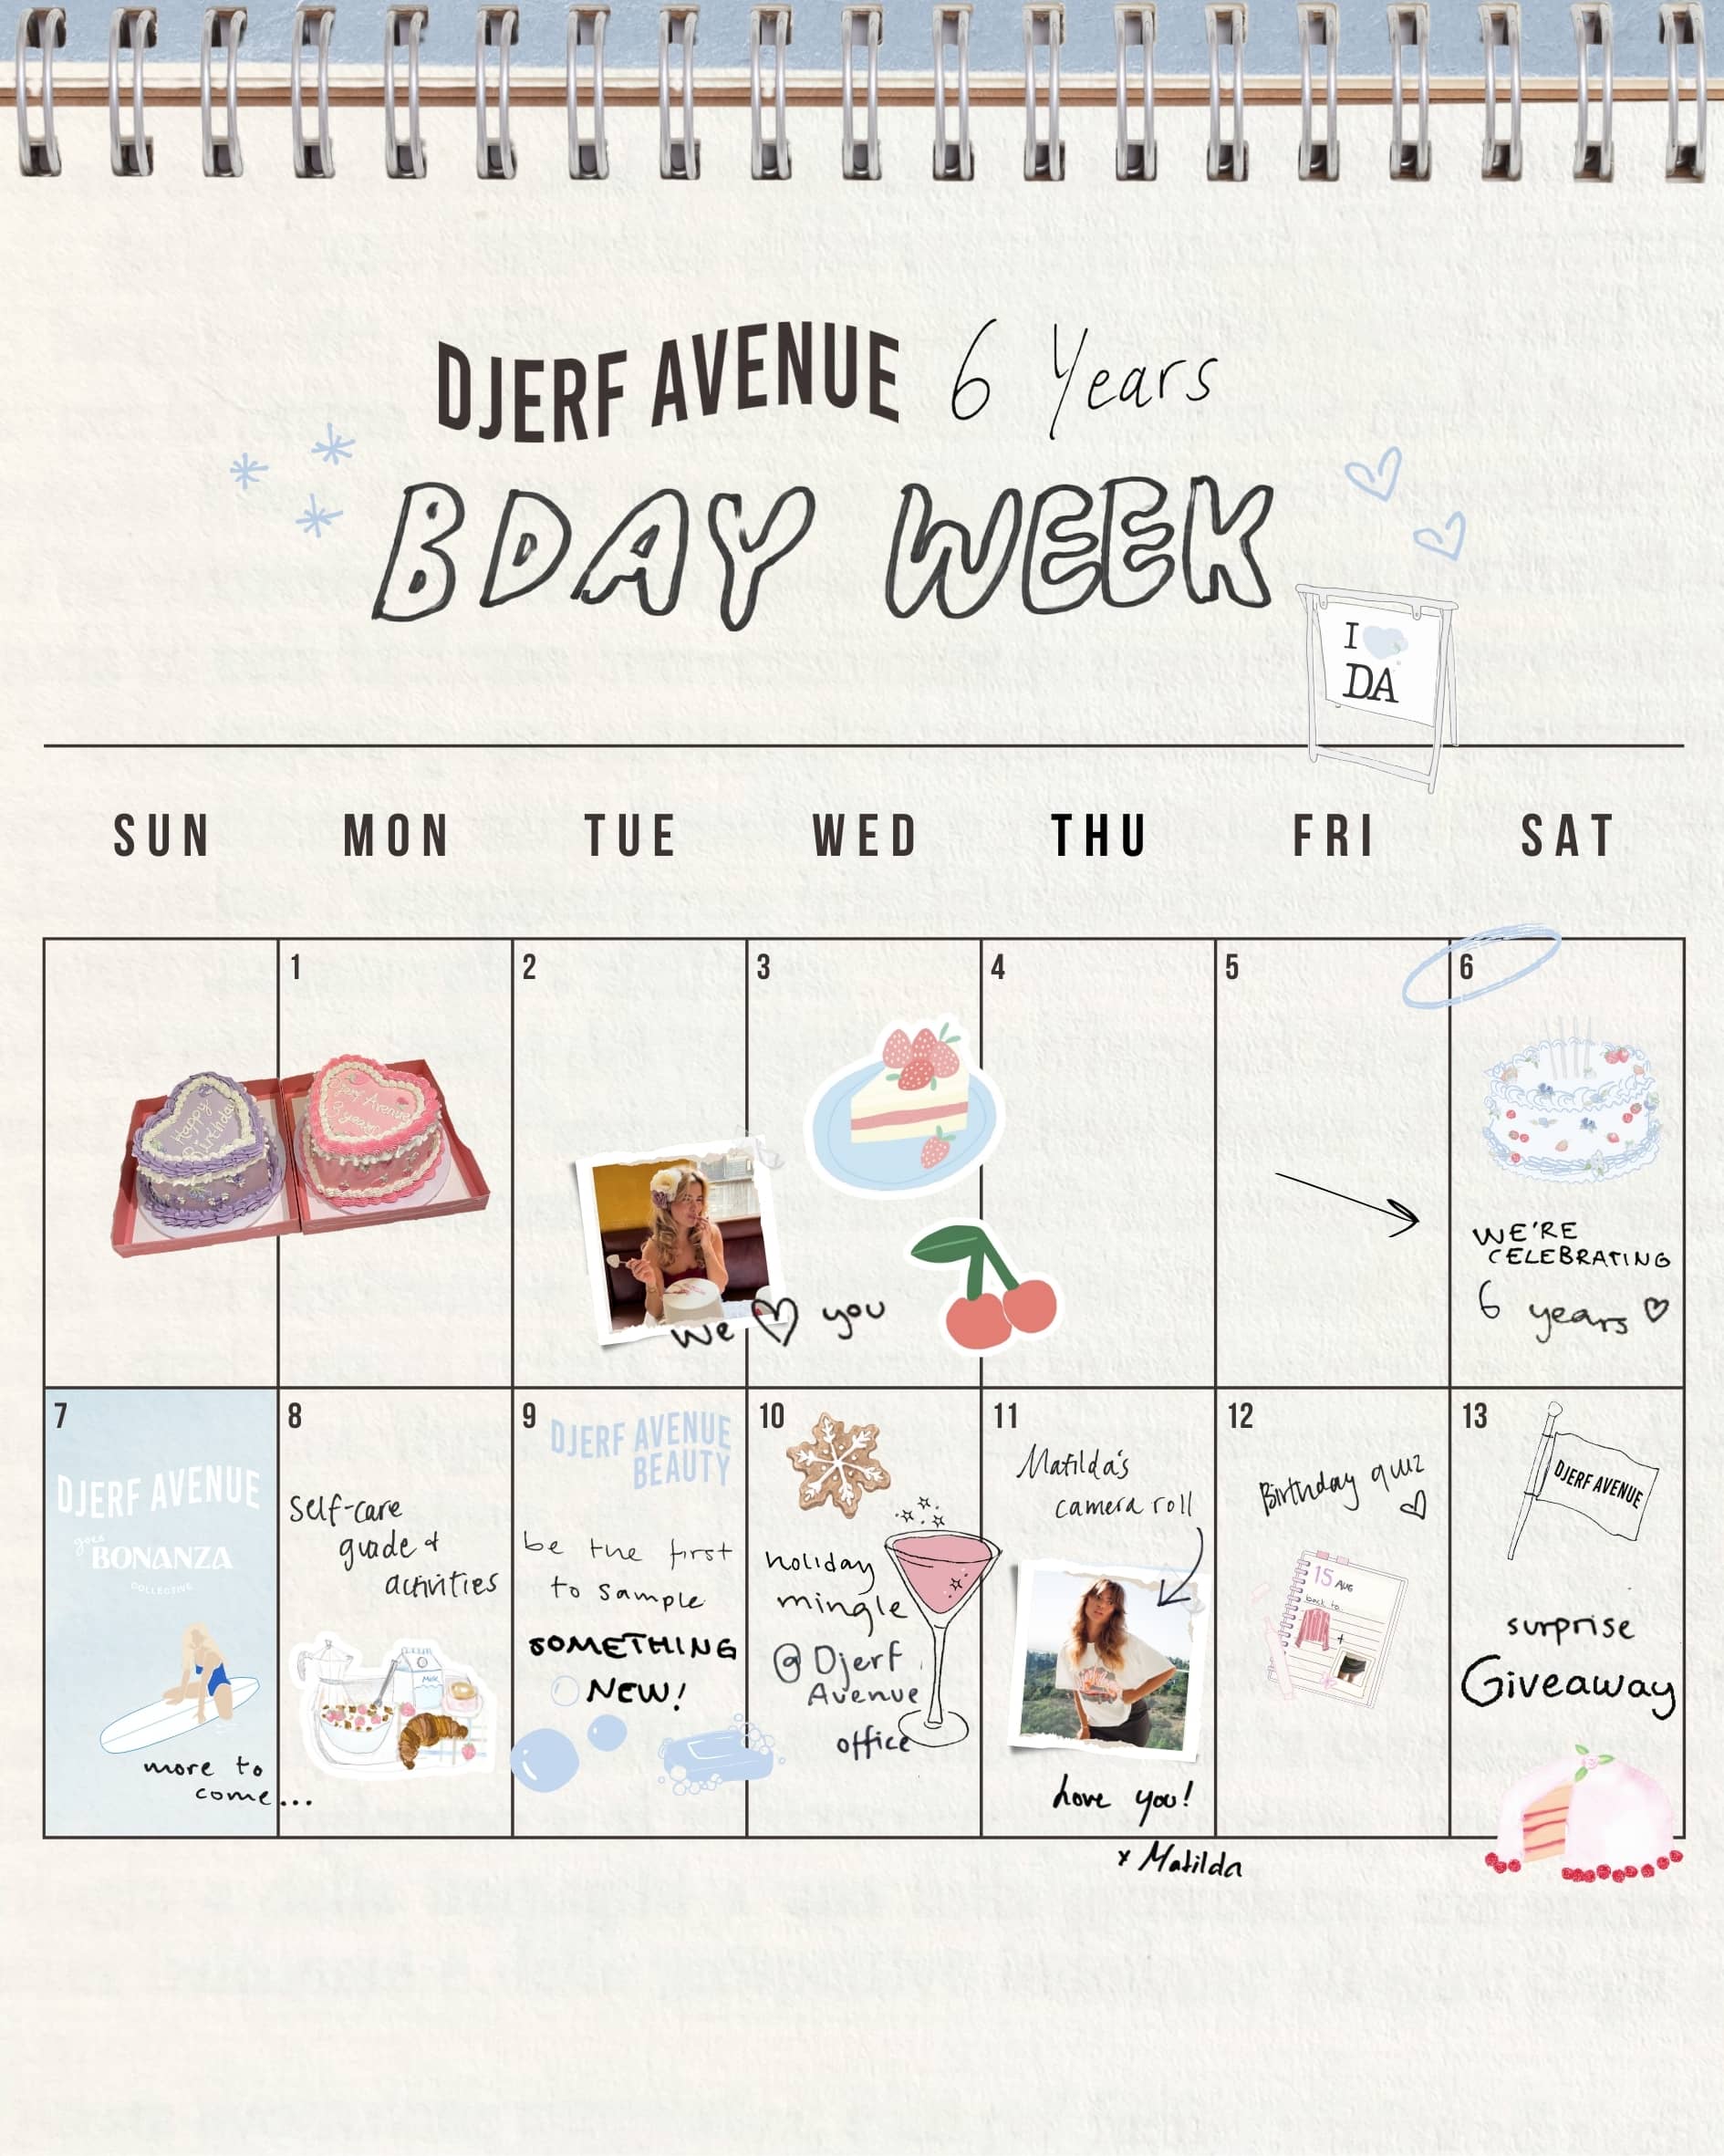 DJERF AVENUE 6 Years
BDAY WEEK
I
DA
SUN MON TUE WED THU FRI SAT
1 2 3 4 5 6
Happy
Birthday
Djerf Avenue
6 years
we ♡ you
WE'RE
CELEBRATING
6 years ♡
7
DJERF AVENUE
goes
BONANZA
COLLECTIVE
more to
come...
8
Self-care
guide &
activities
Milk
9
DJERF AVENUE
BEAUTY
be the first
to sample
SOMETHING
NEW!
10
holiday
mingle
@ Djerf
Avenue
office
11
Matilda's
camera roll
Love you!
x Matilda
12
Birthday quiz
♡
15 AUG
back to
+
13
DJERF AVENUE
surprise
Giveaway